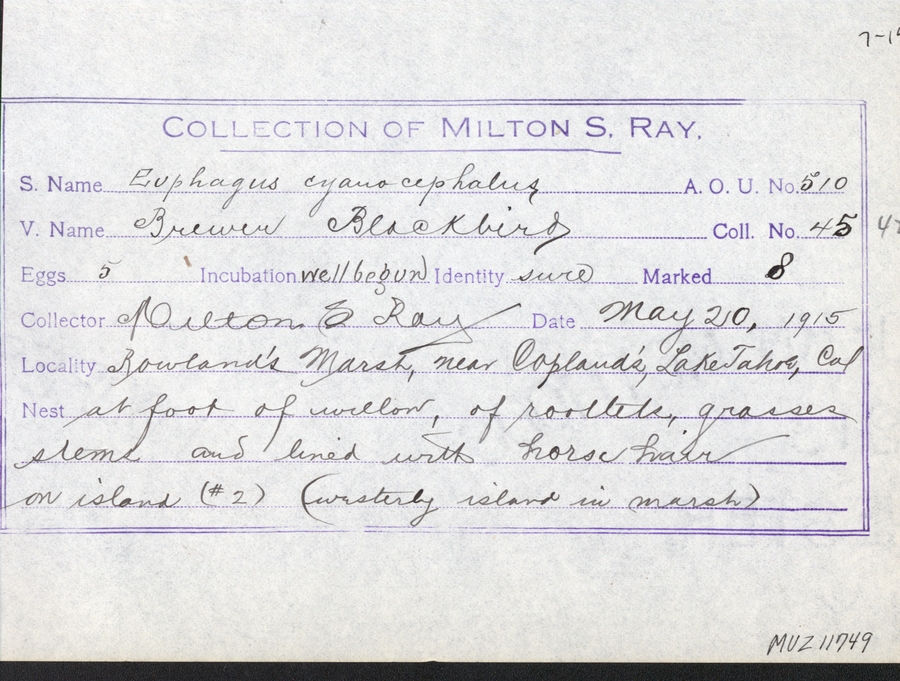 7-1
COLLECTION OF MILTON S. RAY.
S. Name Euphagus cyanocephalus A. O. U. No. 510
V. Name Brewer Blackbird Coll. No. 45
Eggs 5 Incubation well begun Identity sure Marked 8
Collector Milton S Ray Date May 20, 1915
Locality Rowland's Marsh, near Copland's, Lake Tahoe, Cal
Nest at foot of willow, of rootlets, grasses
stems and lined with horse hair
on island (#2) (westerly island in marsh)
MVZ 11749